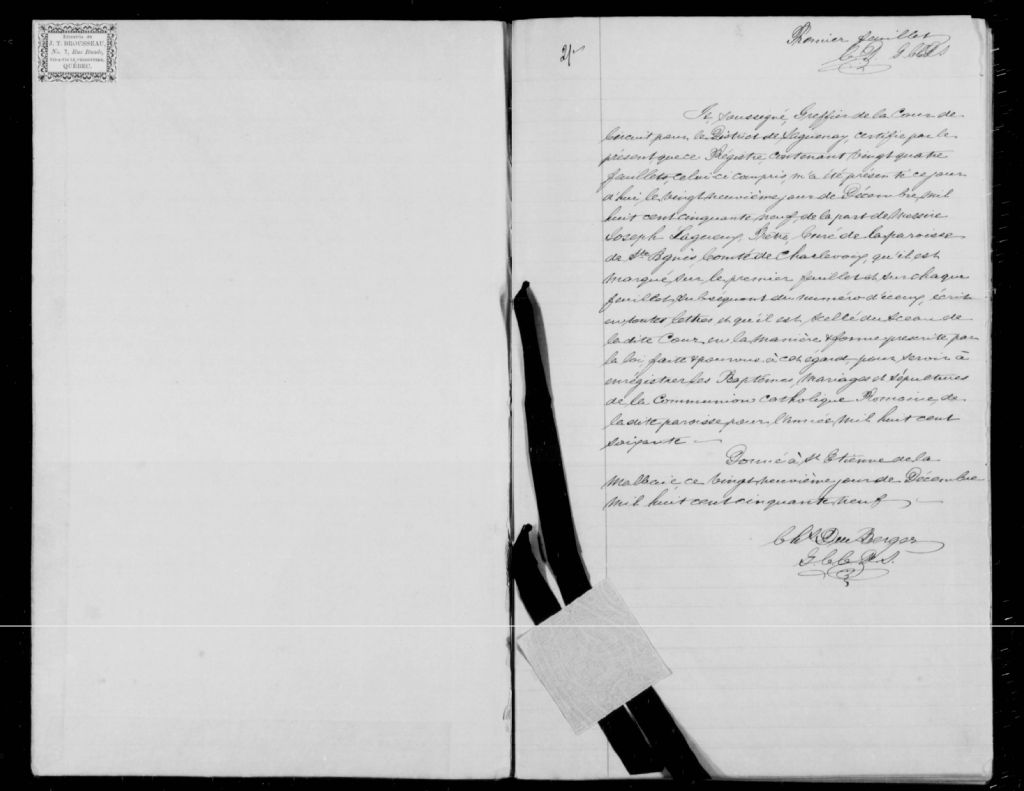 Librairie de
J. T. BROUSSEAU,
No. 7, Rue Buade,
VIS-A-VIS LE PRESBYTERE,
QUÉBEC.
2/-
Premier feuillet
Je, Soussigné, Greffier de la Cour de
Circuit pour le District de Saguenay, certifie par le
présent que ce Régistre, contenant vingt quatre
feuillets, celui ci compris, m'a été présenté ce jour
d'hui, le vingt neuvième jour de Décembre, mil
huit cent cinquante neuf, de la part de Messire
Joseph Lagueux, Prêtre, Curé de la paroisse
de Ste Agnès, Comté de Charlevoix, qu'il est
marqué sur le premier feuillet et sur chaque
feuillet subséquent du numéro d'iceux, écrit
en toutes lettres et qu'il est scellé du Sceau de
la dite Cour, en la manière & forme prescrite par
la loi, faite & pourvue à cet égard pour servir à
enrégistrer les Baptêmes, Mariages et Sépultures
de la Communion Catholique Romaine, de
la dite paroisse pour l'année mil huit cent
soixante —
Donné à St Etienne de la
Malbaie, ce vingt neuvième jour de Décembre
mil huit cent cinquante neuf —
Chs Du Berger
G. C. C. D. S.